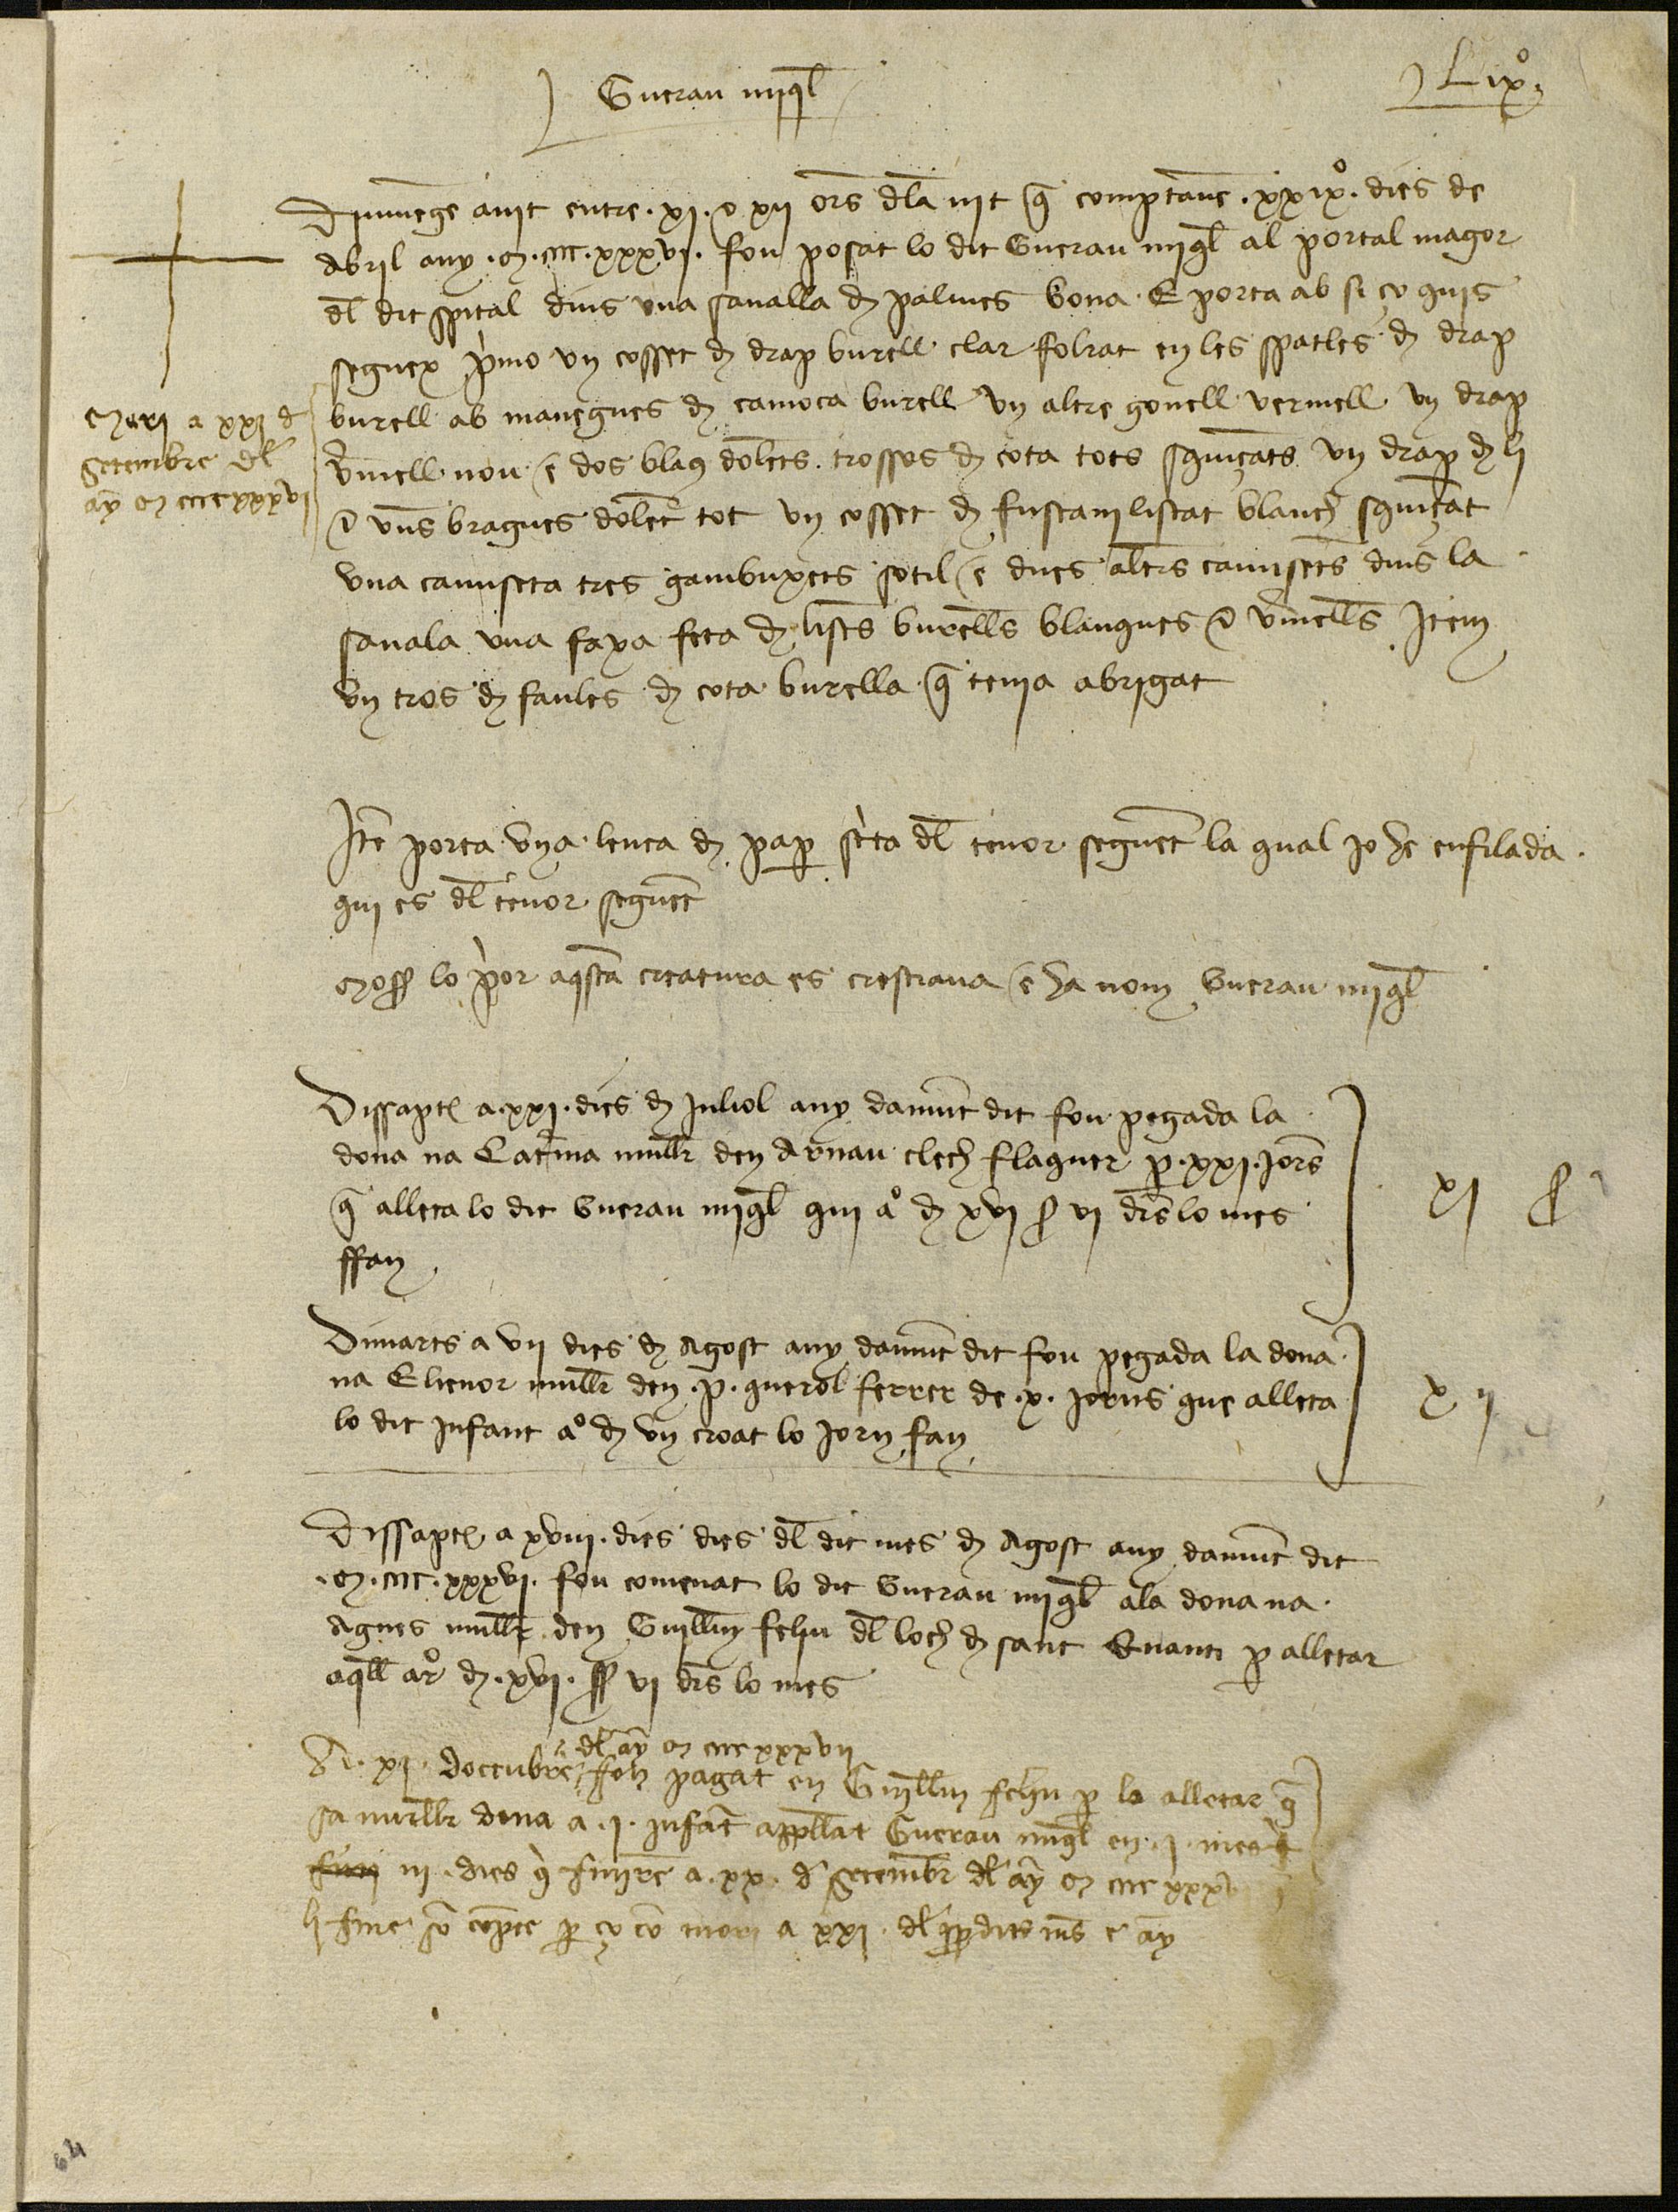 Guerau miql̄
Lixº
Diumenge a nit entre .xi. e xii ors̄ dl̄a nit q̄ comptauē .xxixº. dies de
Abril any .M.cccc.xxxvi. fou posat lo dit Guerau miql̄ al portal magor
dl̄ dit spital dins vna sanalla d palmes bona. E porta ab si ço quis
seguex p̀mo vn cosset d drap burell clar folrat en les spatles d drap
burell ab manegues d camoca burell vn altre gonell vermell vn drap
v̄mell nou e dos blāq dolēts trossos d cota tots sguinçats vn drap d li
e vns bragues dolēt tot vn cosset d fustani listat blanch sguinçat
vna camiseta tres gambuxets sotil e dues altrs̄ camisets̄ dins la
sanala vna faxa feta d listes burells̄ blanques e v̄mells̄ Item
vn tros d faules d cota burella q̄ tenia abrigat
Mori a xxi d
Setembre dl̄
ay̅ M ccccxxxvi
Itē porta vna lenca d pap sc̀ta dl̄ tenor seguēt la qual jo he enfilada
qui es dl̄ tenor seguēt
Moss lo p̀or aq̄sta creatura es crestiana e ha nom Guerau miql̄
Dissapte a .xxi. dies d juliol any damūt dit fou pegada la
dona na Catīna mullr̄ den Arnau clech flaquer p .xxi. jorns̄
q̄ alleta lo dit Guerau miql̄ qui aº d xvi s vi drs̄ lo mes
ffan
xi s
Dimarts a vii dies d Agost any damūt dit fou pegada la dona
na Elienor mullr̄ den .p. querol ferrer de .x. jorns que alleta
lo dit jnfant aº d vn croat lo jorn fan
x ii
Dissapte a xviii. dies dies dl̄ dit mes d Agost any damūt dit
.M.cccc.xxxvi. fou comenat lo dit Guerau miql̄ ala dona na
Agnes mullr̄ den Guillm̄ feliu dl̄ loch d sant p alletar
aq̄ll arº d .xvi. ss vi drs̄ lo mes
dl̄ ay̅ M cccc xxxvii
A .xi. doctubre fou pagat en Guillm̄ feliu p lo alletar q̄
sa mullr̄ dona a .i. jnfāt appellat Guerau miql̄ en .i. mes e
iii. dies q̄ finirē a .xx. d Setembr̄ dl̄ ay̅ M cccc xxxvi
li fine sō cōpte p ço cō mori a xxi. dl̄ ppdits ms̄ e ay̅
64